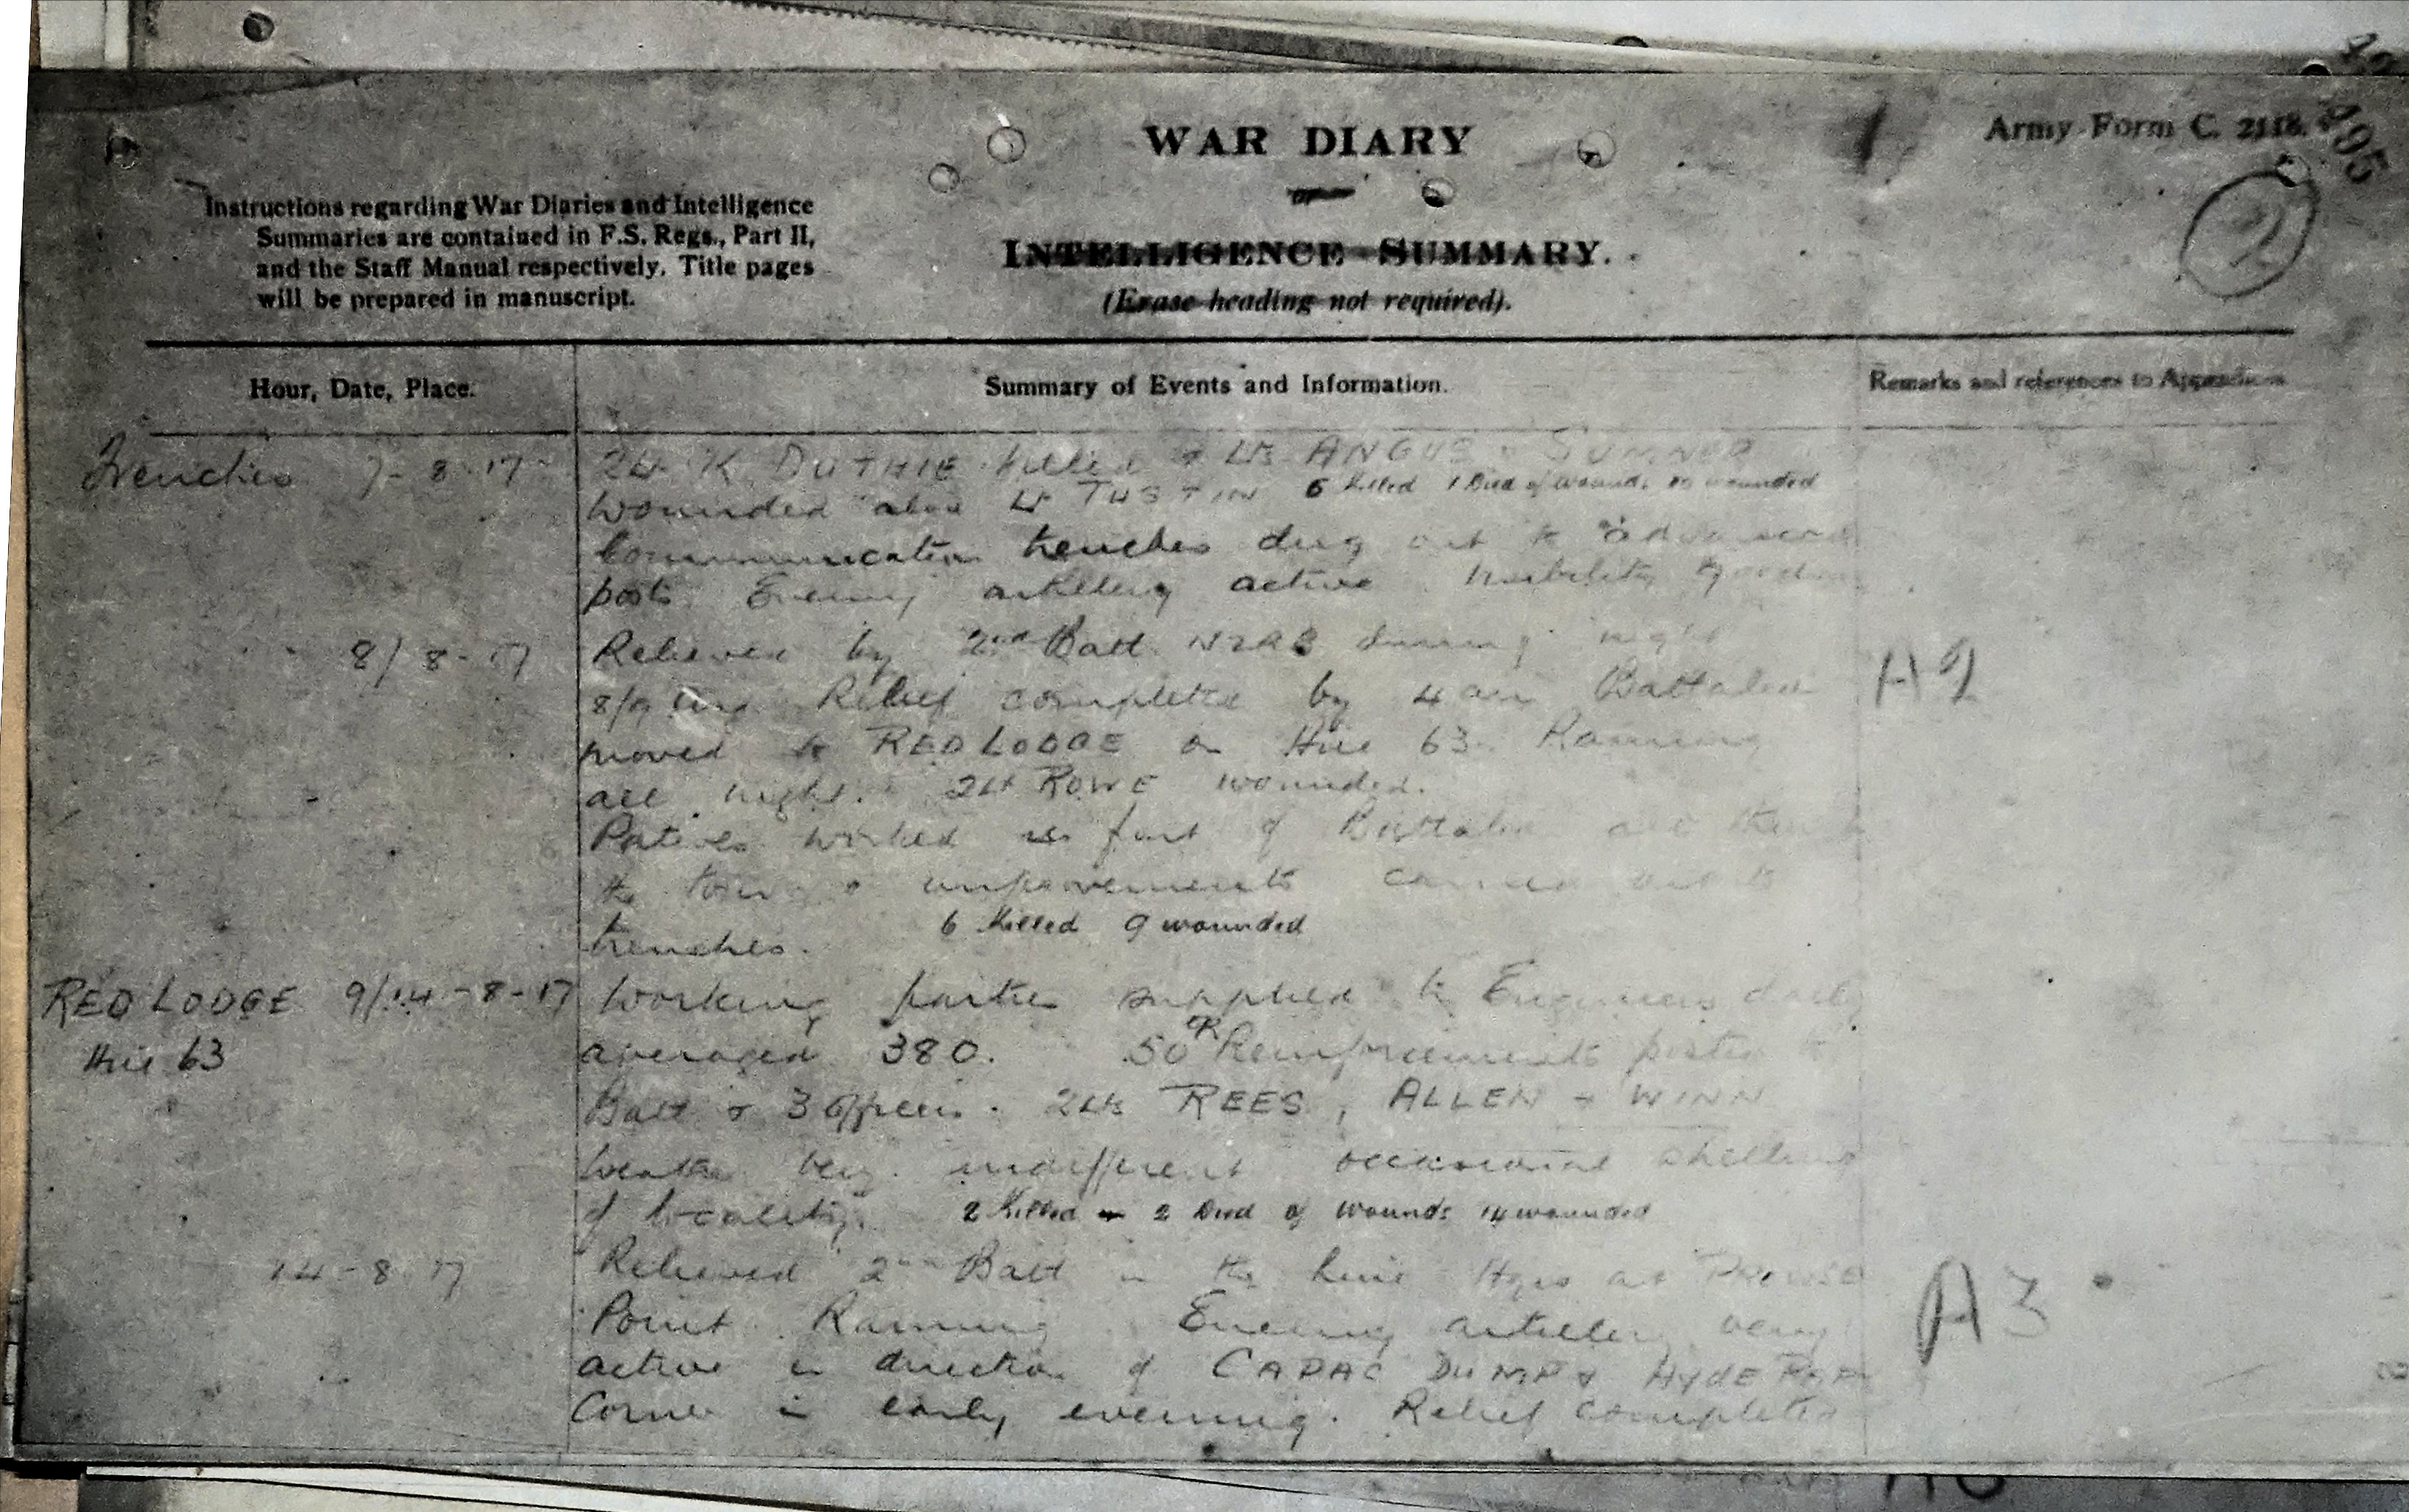 WAR DIARY
Army Form C. 2118.
495
or
2
Instructions regarding War Diaries and Intelligence
Summaries are contained in F.S. Regs., Part II,
and the Staff Manual respectively. Title pages
will be prepared in manuscript.
INTELLIGENCE SUMMARY.
(Erase heading not required).
Hour, Date, Place.
Summary of Events and Information.
Remarks and references to Appendices
Trenches 7-8-17
2Lt K DUTHIE killed & Lts ANGUS & SUMNER
wounded also Lt TUSTIN 6 killed 1 Died of wounds wounded
Communication trenches dug out to advanced
posts. Enemy artillery active Visibility good
8/8-17
Relieved by 2nd Batt NZRB during night
8/9 Relief completed by 4 am Battalion
A2
moved to RED LODGE on Hill 63. Raining
all night. 2Lt ROWE wounded.
Patrols worked in front of Battalion all
the tour & improvements carried out to
trenches. 6 Killed 9 wounded
RED LODGE 9/14-8-17
Hill 63
Working parties supplied to Engineers daily
averaged 380. 50 OR Reinforcements posted to
Batt & 3 Officers. 2Lts REES, ALLEN & WINN
Weather very indifferent occasional shelling
of locality. 2 Killed 2 Died of wounds 14 wounded
14-8-17
Relieved 2nd Batt in the line Hqrs at PROWSE
A3
Point. Raining. Enemy artillery very
active in direction of CAPAC DUMP & HYDE PARK
Corner in early evening. Relief completed